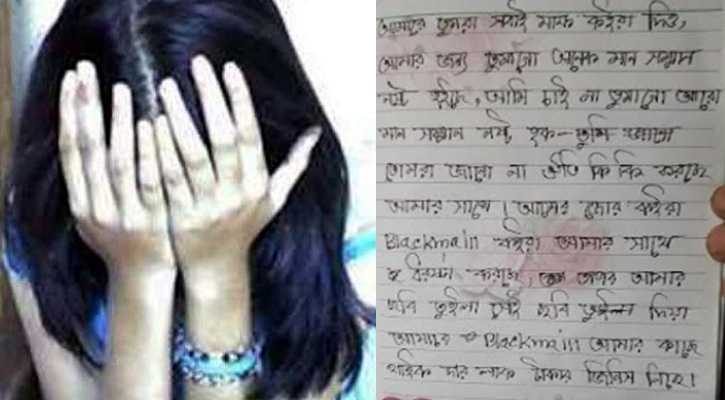 আমারে তুমরা সবাই মাফ কইরা দিও,
আমার জন্য তুমাগো অনেক মান সম্মান
নষ্ট হইছে, আমি চাই না তুমাগো আরো
মান সম্মান নষ্ট হক- তুমি
তোমরা জানো না কি কি করছে
আমার সাথে। জোর কইরা
Blackmail কইরা আমার সাথে
করছে, আমার
ছবি তুইলা সেই ছবি দিয়া
আমারে Blackmail আমার কাছে
থাইক চার লাক টাকার জিনিস নিছে।